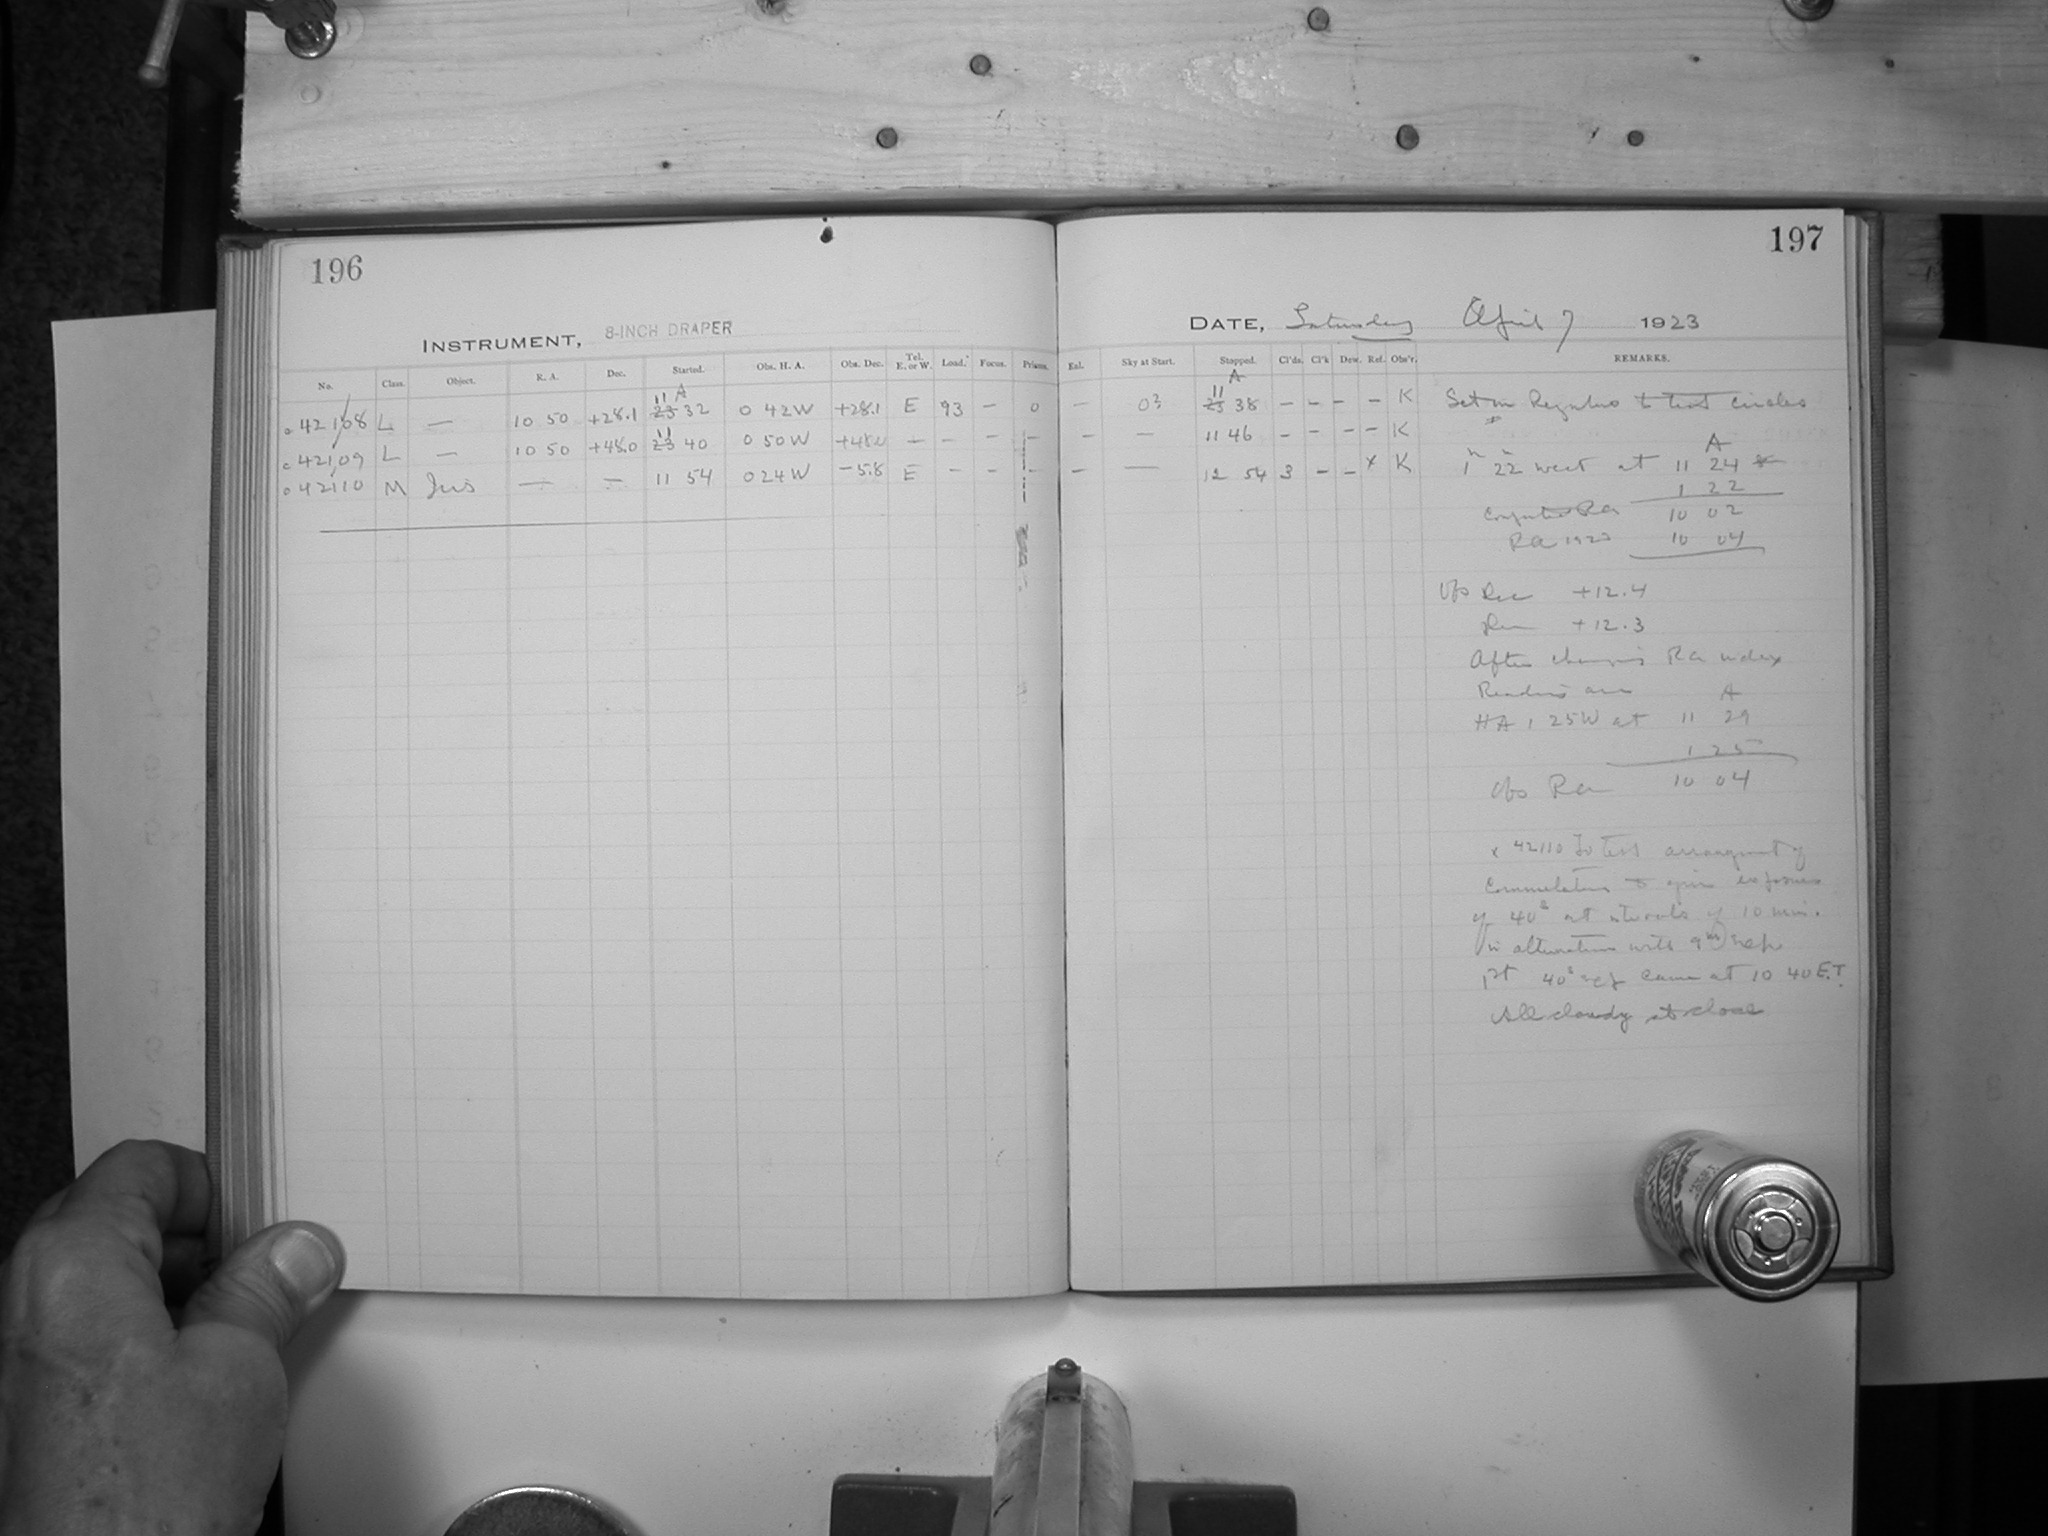 196
INSTRUMENT, 8-INCH DRAPER
No. Class. Object. R. A. Dec. Started. Obs. H. A. Obs. Dec. Tel. E. or W. Load. Focus. Prisms.
A
c 42108 L — 10 50 +28.1 11 23 32 0 42 W +28.1 E 93 — 0
c 42109 L — 10 50 +48.0 11 23 40 0 50 W +48.0 — — — —
c 42110 M Iris — — 11 54 0 24 W −5.8 E — —
197
DATE, Saturday April 7 1923
Enl. Sky at Start. Stopped. Cl'ds. Cl'k Dew. Ref. Obs'r. REMARKS.
A
— 0? 11 23 38 — — — — K
— — 11 46 — — — — K
— — 12 54 3 — — x K
Set on Regulus to test circles
A
1h 22m west at 11 24
1 22
Computed Ra 10 02
Ra 1923 10 04
Obs Dec +12.4
Dec +12.3
After changing Ra index
Readings are A
HA 1 25W at 11 29
1 25
Obs Ra 10 04
x 42110 To test arrangement of
commutators to give exposures
of 40s at intervals of 10 min.
in alternation with 9m
1st 40s came at 10 40 E.T.
All cloudy at close